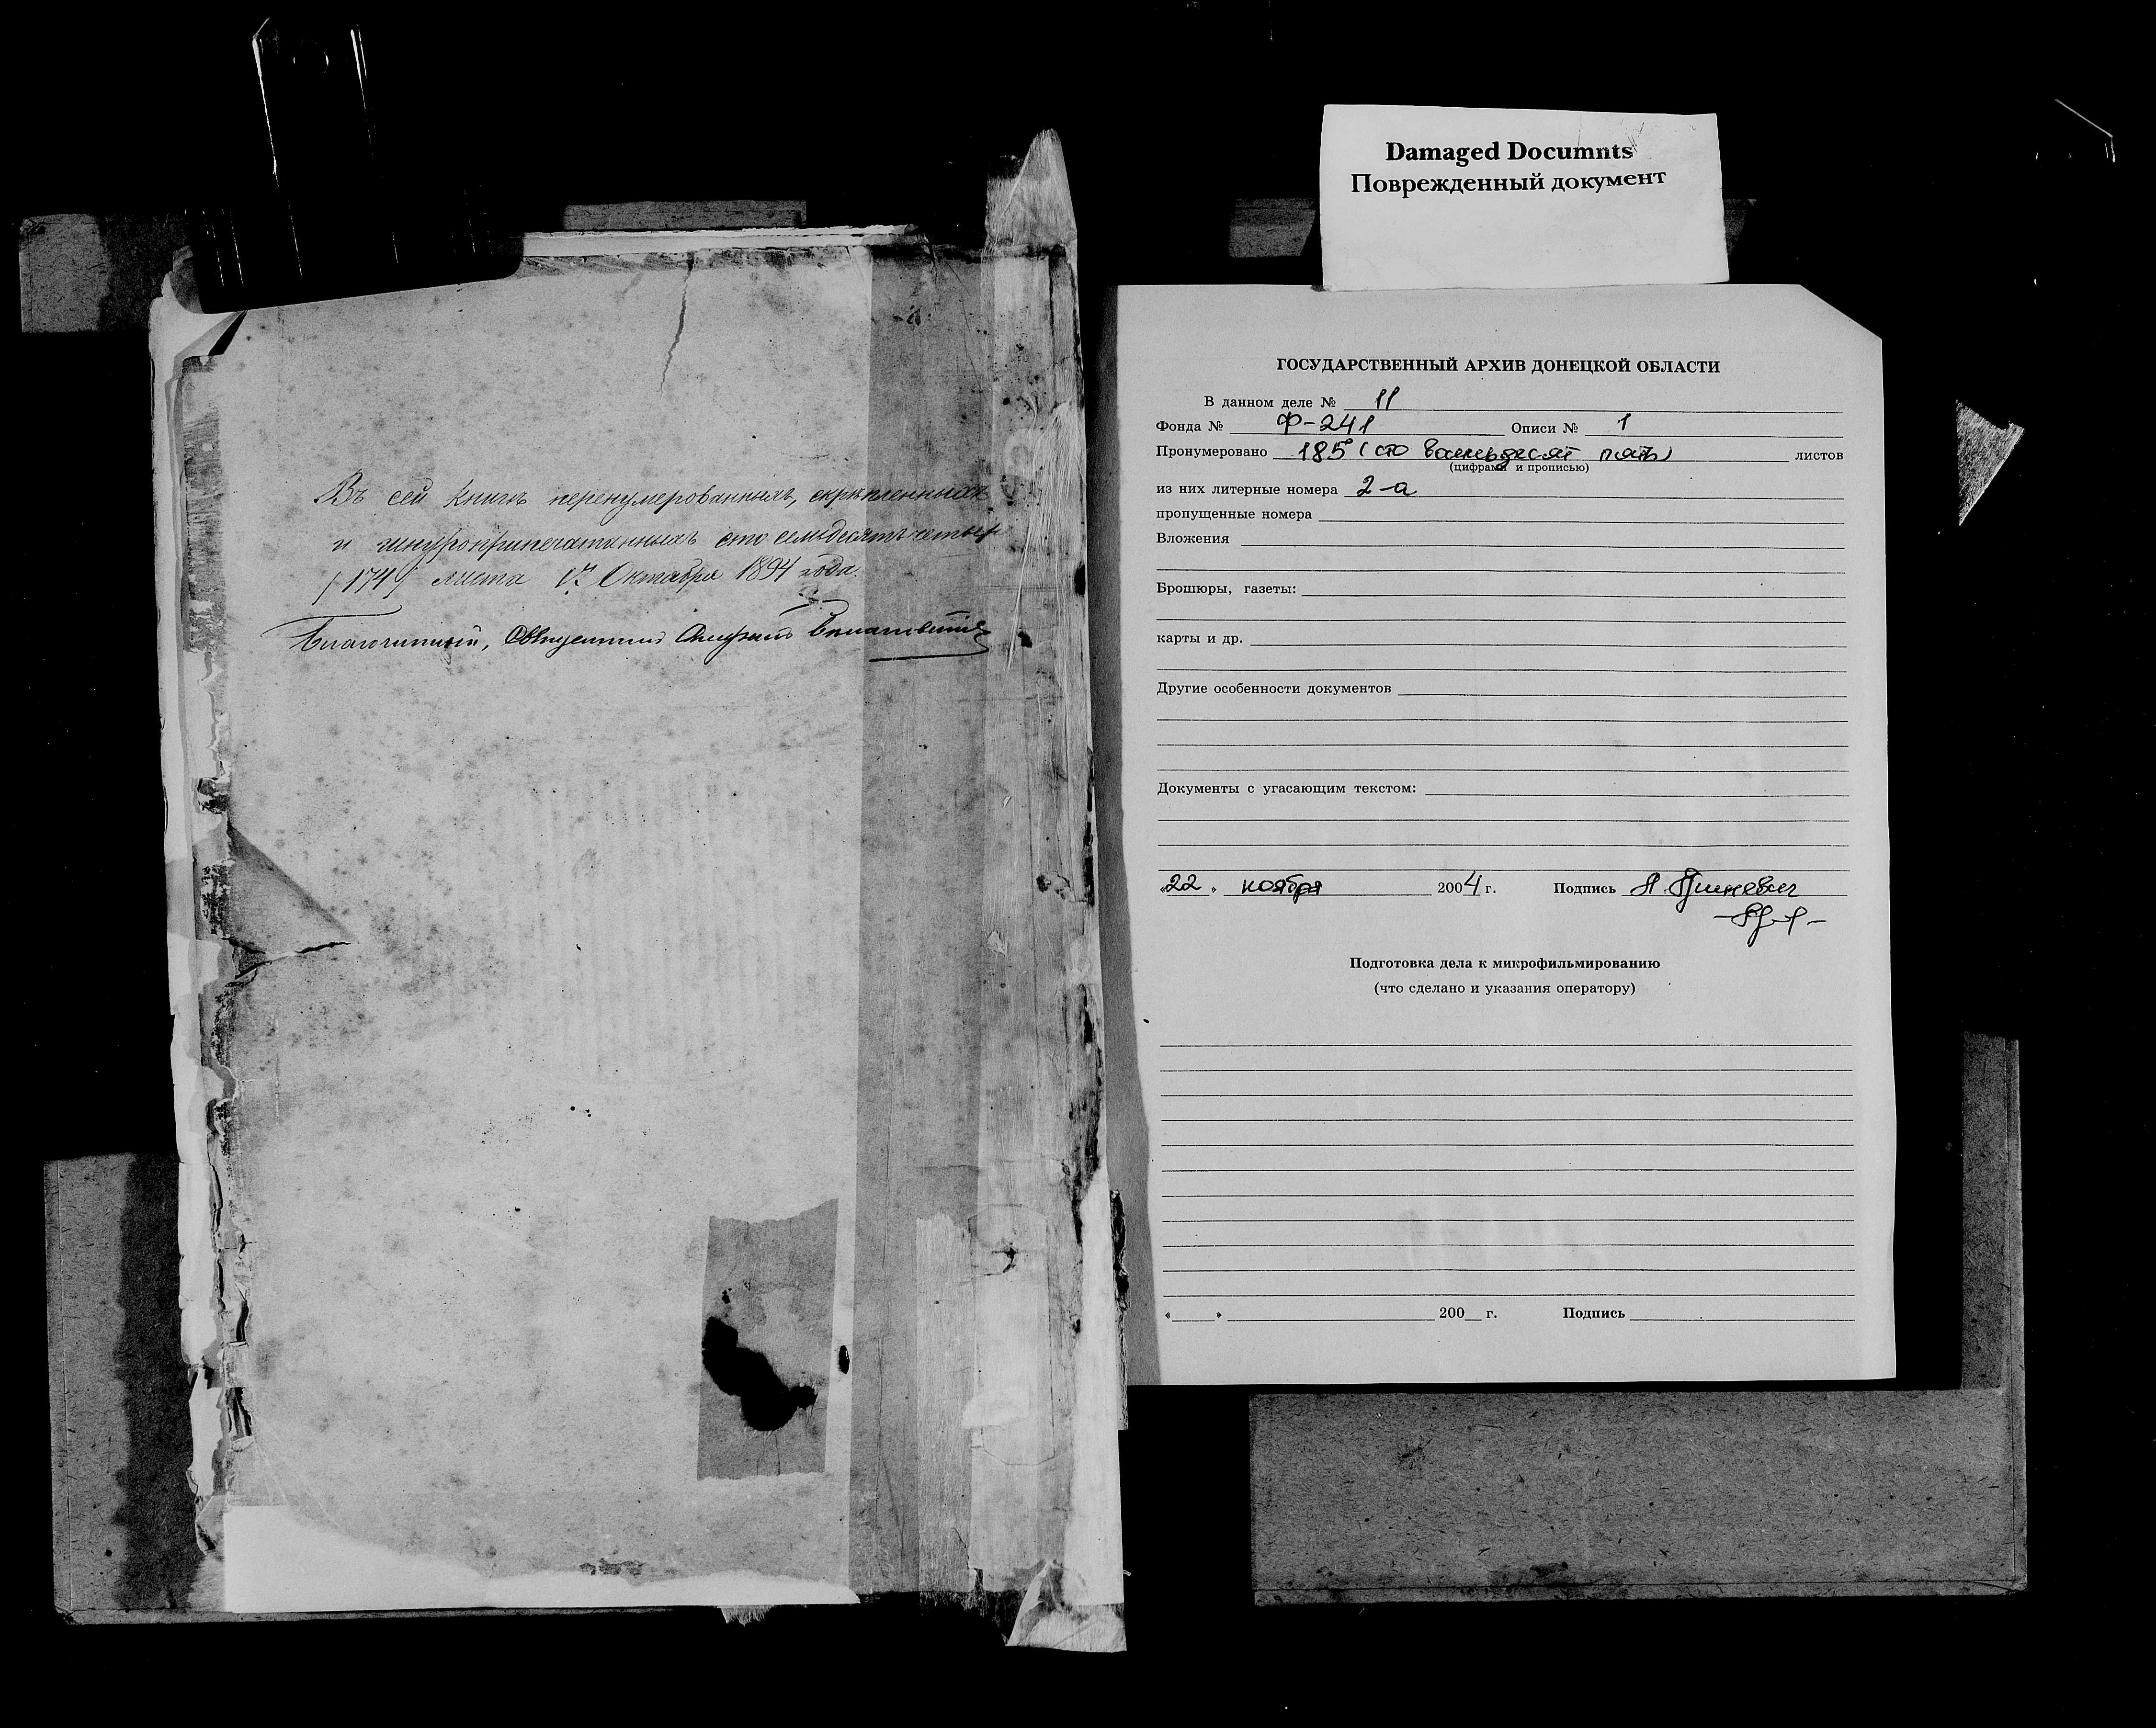 Въ сей книгѣ перенумерованныхъ, скрѣпленныхъ
и шнуроприпечатанныхъ сто семьдесятъ четыре
(174) листа 1894 года.
Благочинный, Священникъ
Damaged Documnts
Поврежденный документ
ГОСУДАРСТВЕННЫЙ АРХИВ ДОНЕЦКОЙ ОБЛАСТИ
В данном деле № 11
Фонда № Ф-241 Описи № 1
Пронумеровано 185 (сто восемьдесят пять) листов
(цифрами и прописью)
из них литерные номера 2-а
пропущенные номера
Вложения
Брошюры, газеты:
карты и др.
Другие особенности документов
Документы с угасающим текстом:
«22» ноября 2004 г. Подпись
Подготовка дела к микрофильмированию
(что сделано и указания оператору)
«___» 200__ г. Подпись